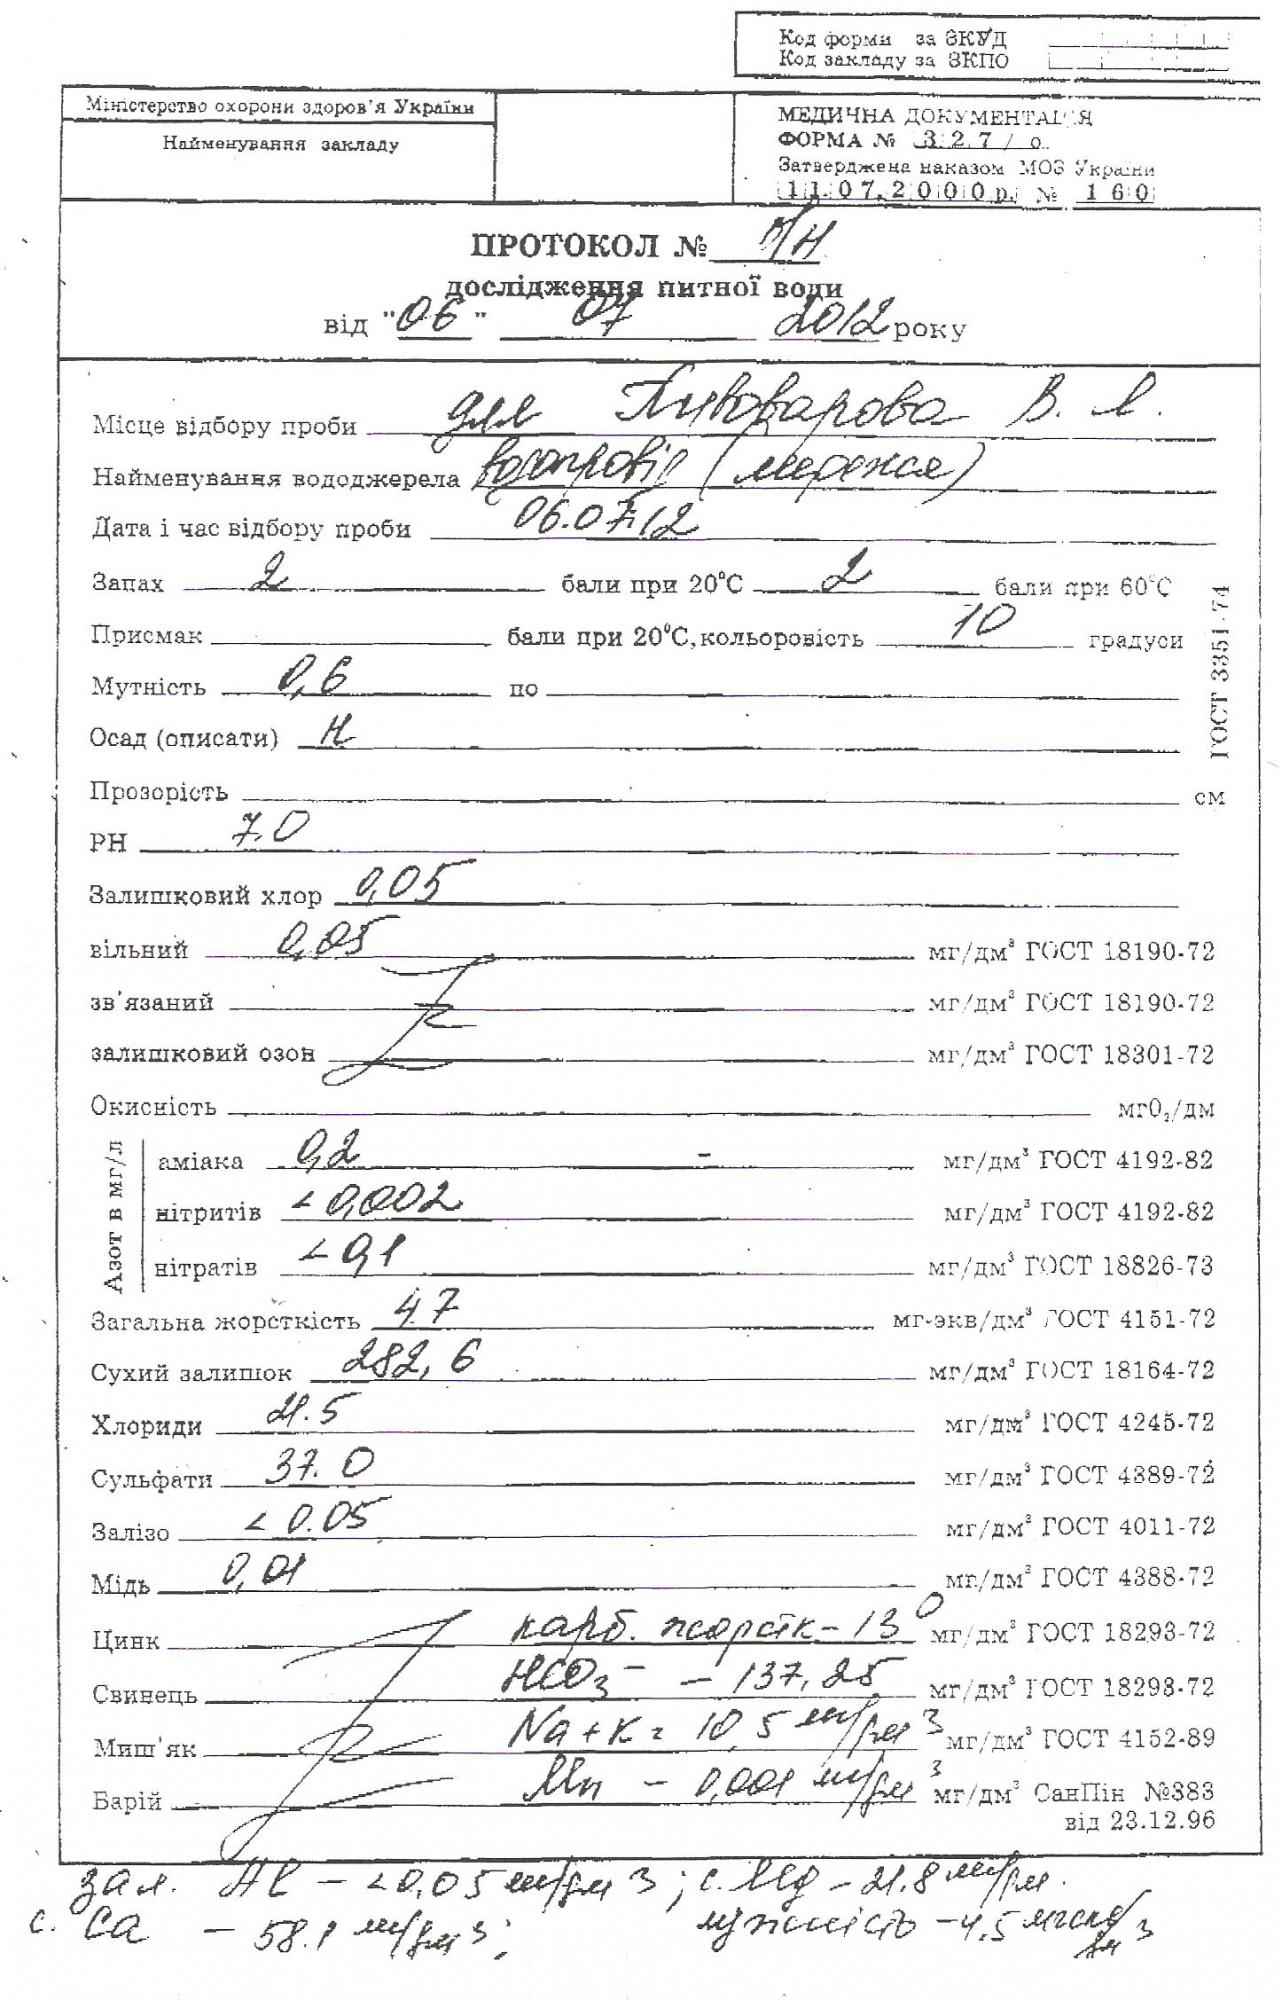 Код форми за ЗКУД
Код закладу за ЗКПО
Міністерство охорони здоров'я України
Найменування закладу
МЕДИЧНА ДОКУМЕНТАЦІЯ
ФОРМА № 327/о
Затверджена наказом МОЗ України
11.07.2000р. № 160
ПРОТОКОЛ № п/н
дослідження питної води
від "06" 07 2012 року
Місце відбору проби для Пивоварова В. Л.
Найменування вододжерела водопровід (мережа)
Дата і час відбору проби 06.07.12
Запах 2 бали при 20°С 2 бали при 60°С
Присмак бали при 20°С, кольоровість 10 градуси
Мутність 0,6 по
Осад (описати) Н
Прозорість см
ГОСТ 3351-74
РН 7.0
Залишковий хлор 0,05
вільний 0,05 мг/дм³ ГОСТ 18190-72
зв'язаний мг/дм³ ГОСТ 18190-72
залишковий озон мг/дм³ ГОСТ 18301-72
Окисність мгО₂/дм
Азот в мг/л
аміака 0,2 - мг/дм³ ГОСТ 4192-82
нітритів < 0,002 мг/дм³ ГОСТ 4192-82
нітратів < 0,1 мг/дм³ ГОСТ 18826-73
Загальна жорсткість 4.7 мг-экв/дм³ ГОСТ 4151-72
Сухий залишок 282,6 мг/дм³ ГОСТ 18164-72
Хлориди 21.5 мг/дм³ ГОСТ 4245-72
Сульфати 37.0 мг/дм³ ГОСТ 4389-72
Залізо < 0.05 мг/дм³ ГОСТ 4011-72
Мідь 0,01 мг/дм³ ГОСТ 4388-72
Цинк карб. жорстк - 13° мг/дм³ ГОСТ 18293-72
Свинець HCO₃⁻ - 137,25 мг/дм³ ГОСТ 18293-72
Миш'як Na + K = 10,5 мг/дм³ мг/дм³ ГОСТ 4152-89
Барій Mn - 0,001 мг/дм³ мг/дм³ СанПін №383
від 23.12.96
зал. Al - <0,05 мг/дм³; с. Mg - 21.8 мг/дм.
с. Ca - 58.1 мг/дм³; лужність - 4,5 мгекв/дм³